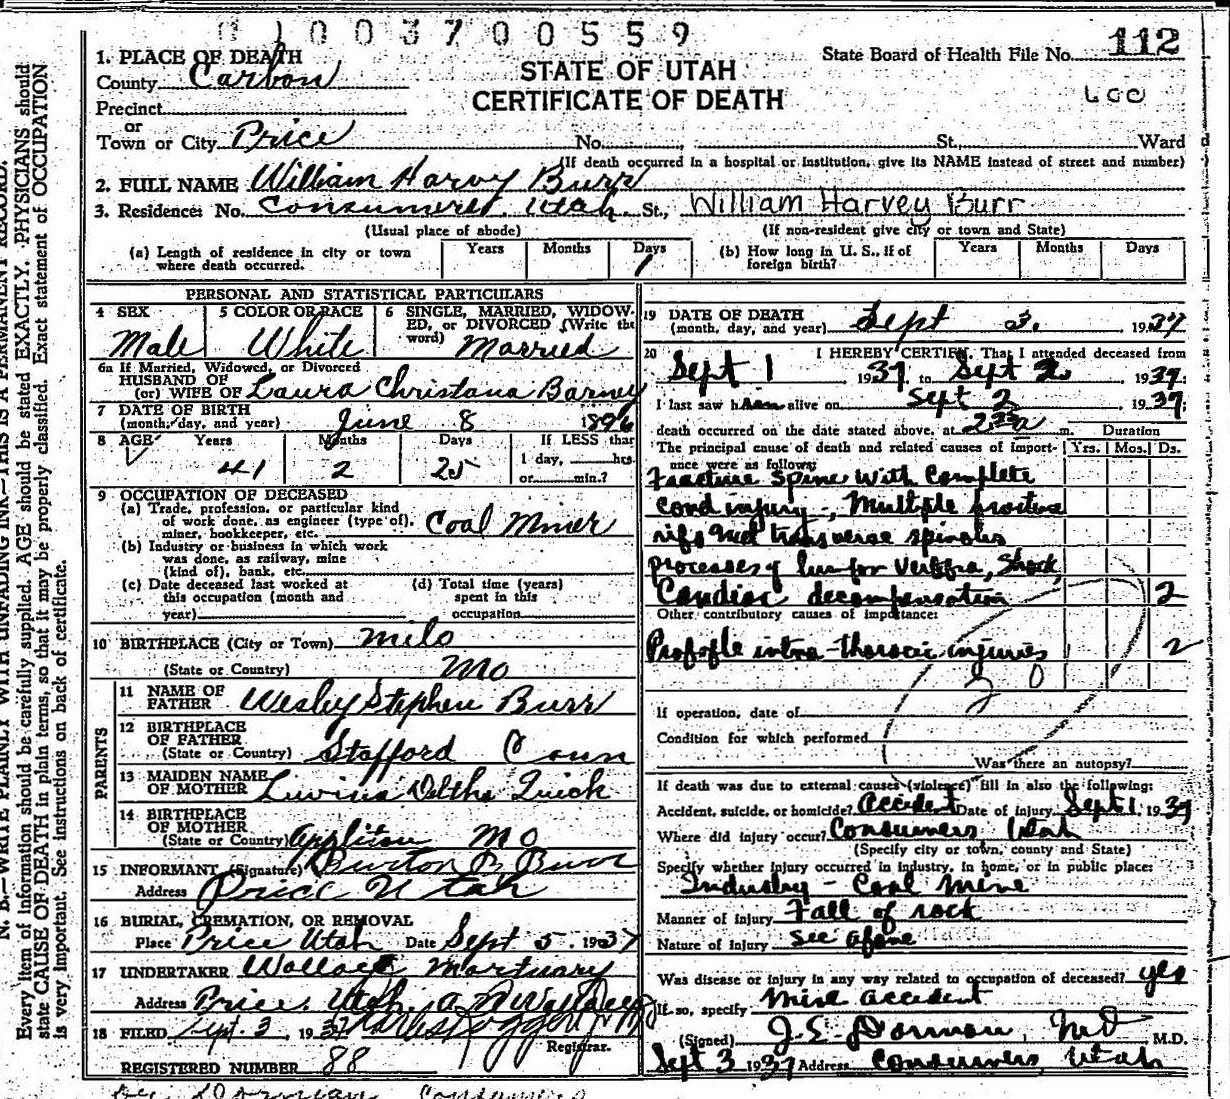 0 1 0 0 3 7 0 0 5 5 9
State Board of Health File No. 112
1. PLACE OF DEATH
County Carbon
STATE OF UTAH
CERTIFICATE OF DEATH
Precinct
or
Town or City Price No. St., Ward
(If death occurred in a hospital or institution, give its NAME instead of street and number)
2. FULL NAME William Harvy Burr
3. Residence: No. Consumers, Utah. St., William Harvey Burr
(Usual place of abode) (If non-resident give city or town and State)
(a) Length of residence in city or town where death occurred. Years Months Days 1
(b) How long in U. S., if of foreign birth? Years Months Days
PERSONAL AND STATISTICAL PARTICULARS
4 SEX Male
5 COLOR OR RACE White
6 SINGLE, MARRIED, WIDOWED, or DIVORCED (Write the word) Married
6a If Married, Widowed, or Divorced
HUSBAND OF
(or) WIFE OF Laura Christana Barney
7 DATE OF BIRTH
(month, day, and year) June 8 1896
8 AGE Years 41 Months 2 Days 25 If LESS than 1 day, hrs. or min.?
9 OCCUPATION OF DECEASED
(a) Trade, profession, or particular kind of work done, as engineer (type of), miner, bookkeeper, etc. Coal Miner
(b) Industry or business in which work was done, as railway, mine (kind of), bank, etc.
(c) Date deceased last worked at this occupation (month and year)
(d) Total time (years) spent in this occupation
10 BIRTHPLACE (City or Town) Milo
(State or Country) Mo
PARENTS
11 NAME OF FATHER Wesley Stephen Burr
12 BIRTHPLACE OF FATHER
(State or Country) Stafford Conn
13 MAIDEN NAME OF MOTHER Luvina Deltha Quick
14 BIRTHPLACE OF MOTHER
(State or Country) Appliton Mo
15 INFORMANT (Signature) Burton Burr
Address Price Utah
16 BURIAL, CREMATION, OR REMOVAL
Place Price Utah Date Sept 5. 1937
17 UNDERTAKER Wallace Mortuary
Address Price, Utah.
18 FILED Sept. 3, 1937
Registrar.
REGISTERED NUMBER 88
19 DATE OF DEATH
(month, day, and year) Sept 3. 1937
20 I HEREBY CERTIFY, That I attended deceased from
Sept 1 1937, to Sept 2 1937.
I last saw him alive on Sept 2 1937.
death occurred on the date stated above, at 2 a m. Duration
The principal cause of death and related causes of importance were as follows: Yrs. Mos. Ds.
Fracture Spine With Complete
Cord injury, Multiple fracture
ribs and transverse spinous
processes of lumbar vertebra, Shock,
Cardiac decompensation 2
Other contributory causes of importance:
Probable intra-thoracic injuries 2
If operation, date of
Condition for which performed
Was there an autopsy?
If death was due to external causes (violence) fill in also the following:
Accident, suicide, or homicide? Accident Date of injury Sept 1, 1937
Where did injury occur? Consumers Utah
(Specify city or town, county and State)
Specify whether injury occurred in industry, in home, or in public place:
Industry - Coal Mine
Manner of injury Fall of rock
Nature of injury see above
Was disease or injury in any way related to occupation of deceased? yes
If so, specify Mine accident
(Signed) J. E. Dorman, MD M.D.
Sept 3 1937 Address Consumers, Utah
N. B.—WRITE PLAINLY WITH UNFADING INK—THIS IS A PERMANENT RECORD.
Every item of information should be carefully supplied. AGE should be stated EXACTLY. PHYSICIANS should
state CAUSE OF DEATH in plain terms, so that it may be properly classified. Exact statement of OCCUPATION
is very important. See instructions on back of certificate.